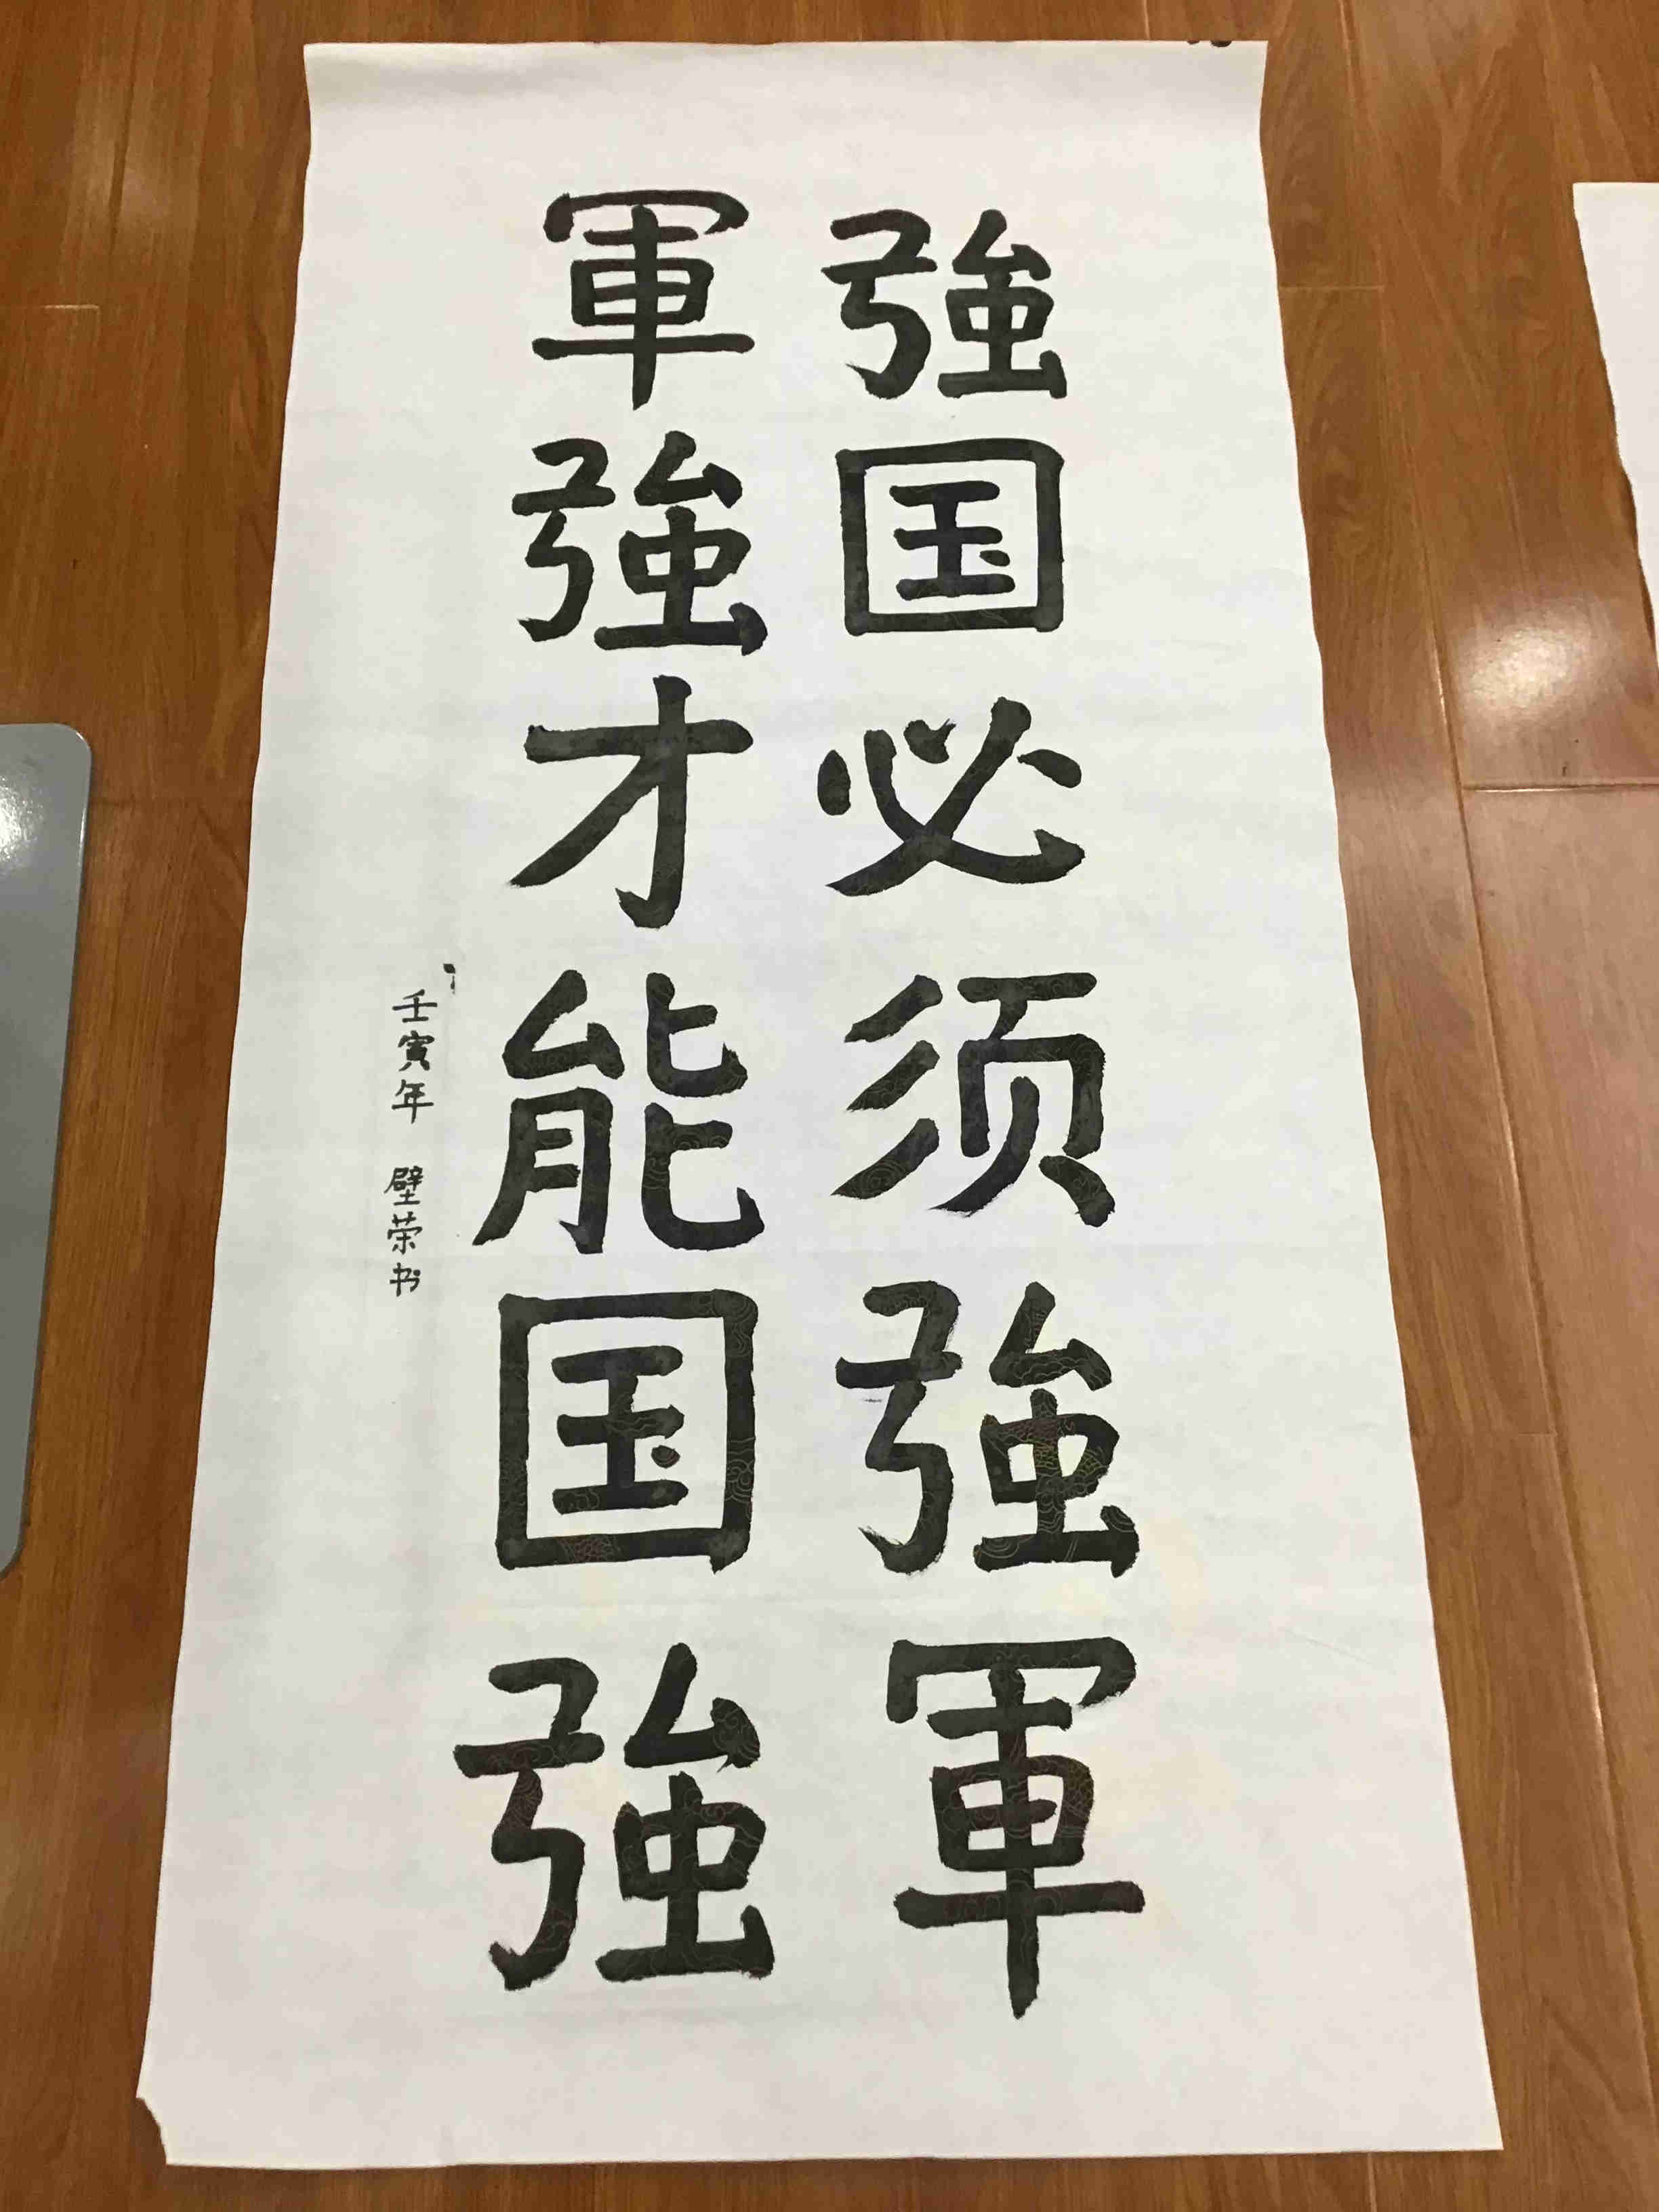 強国必须強軍
軍強才能国強
壬寅年 壁荣书